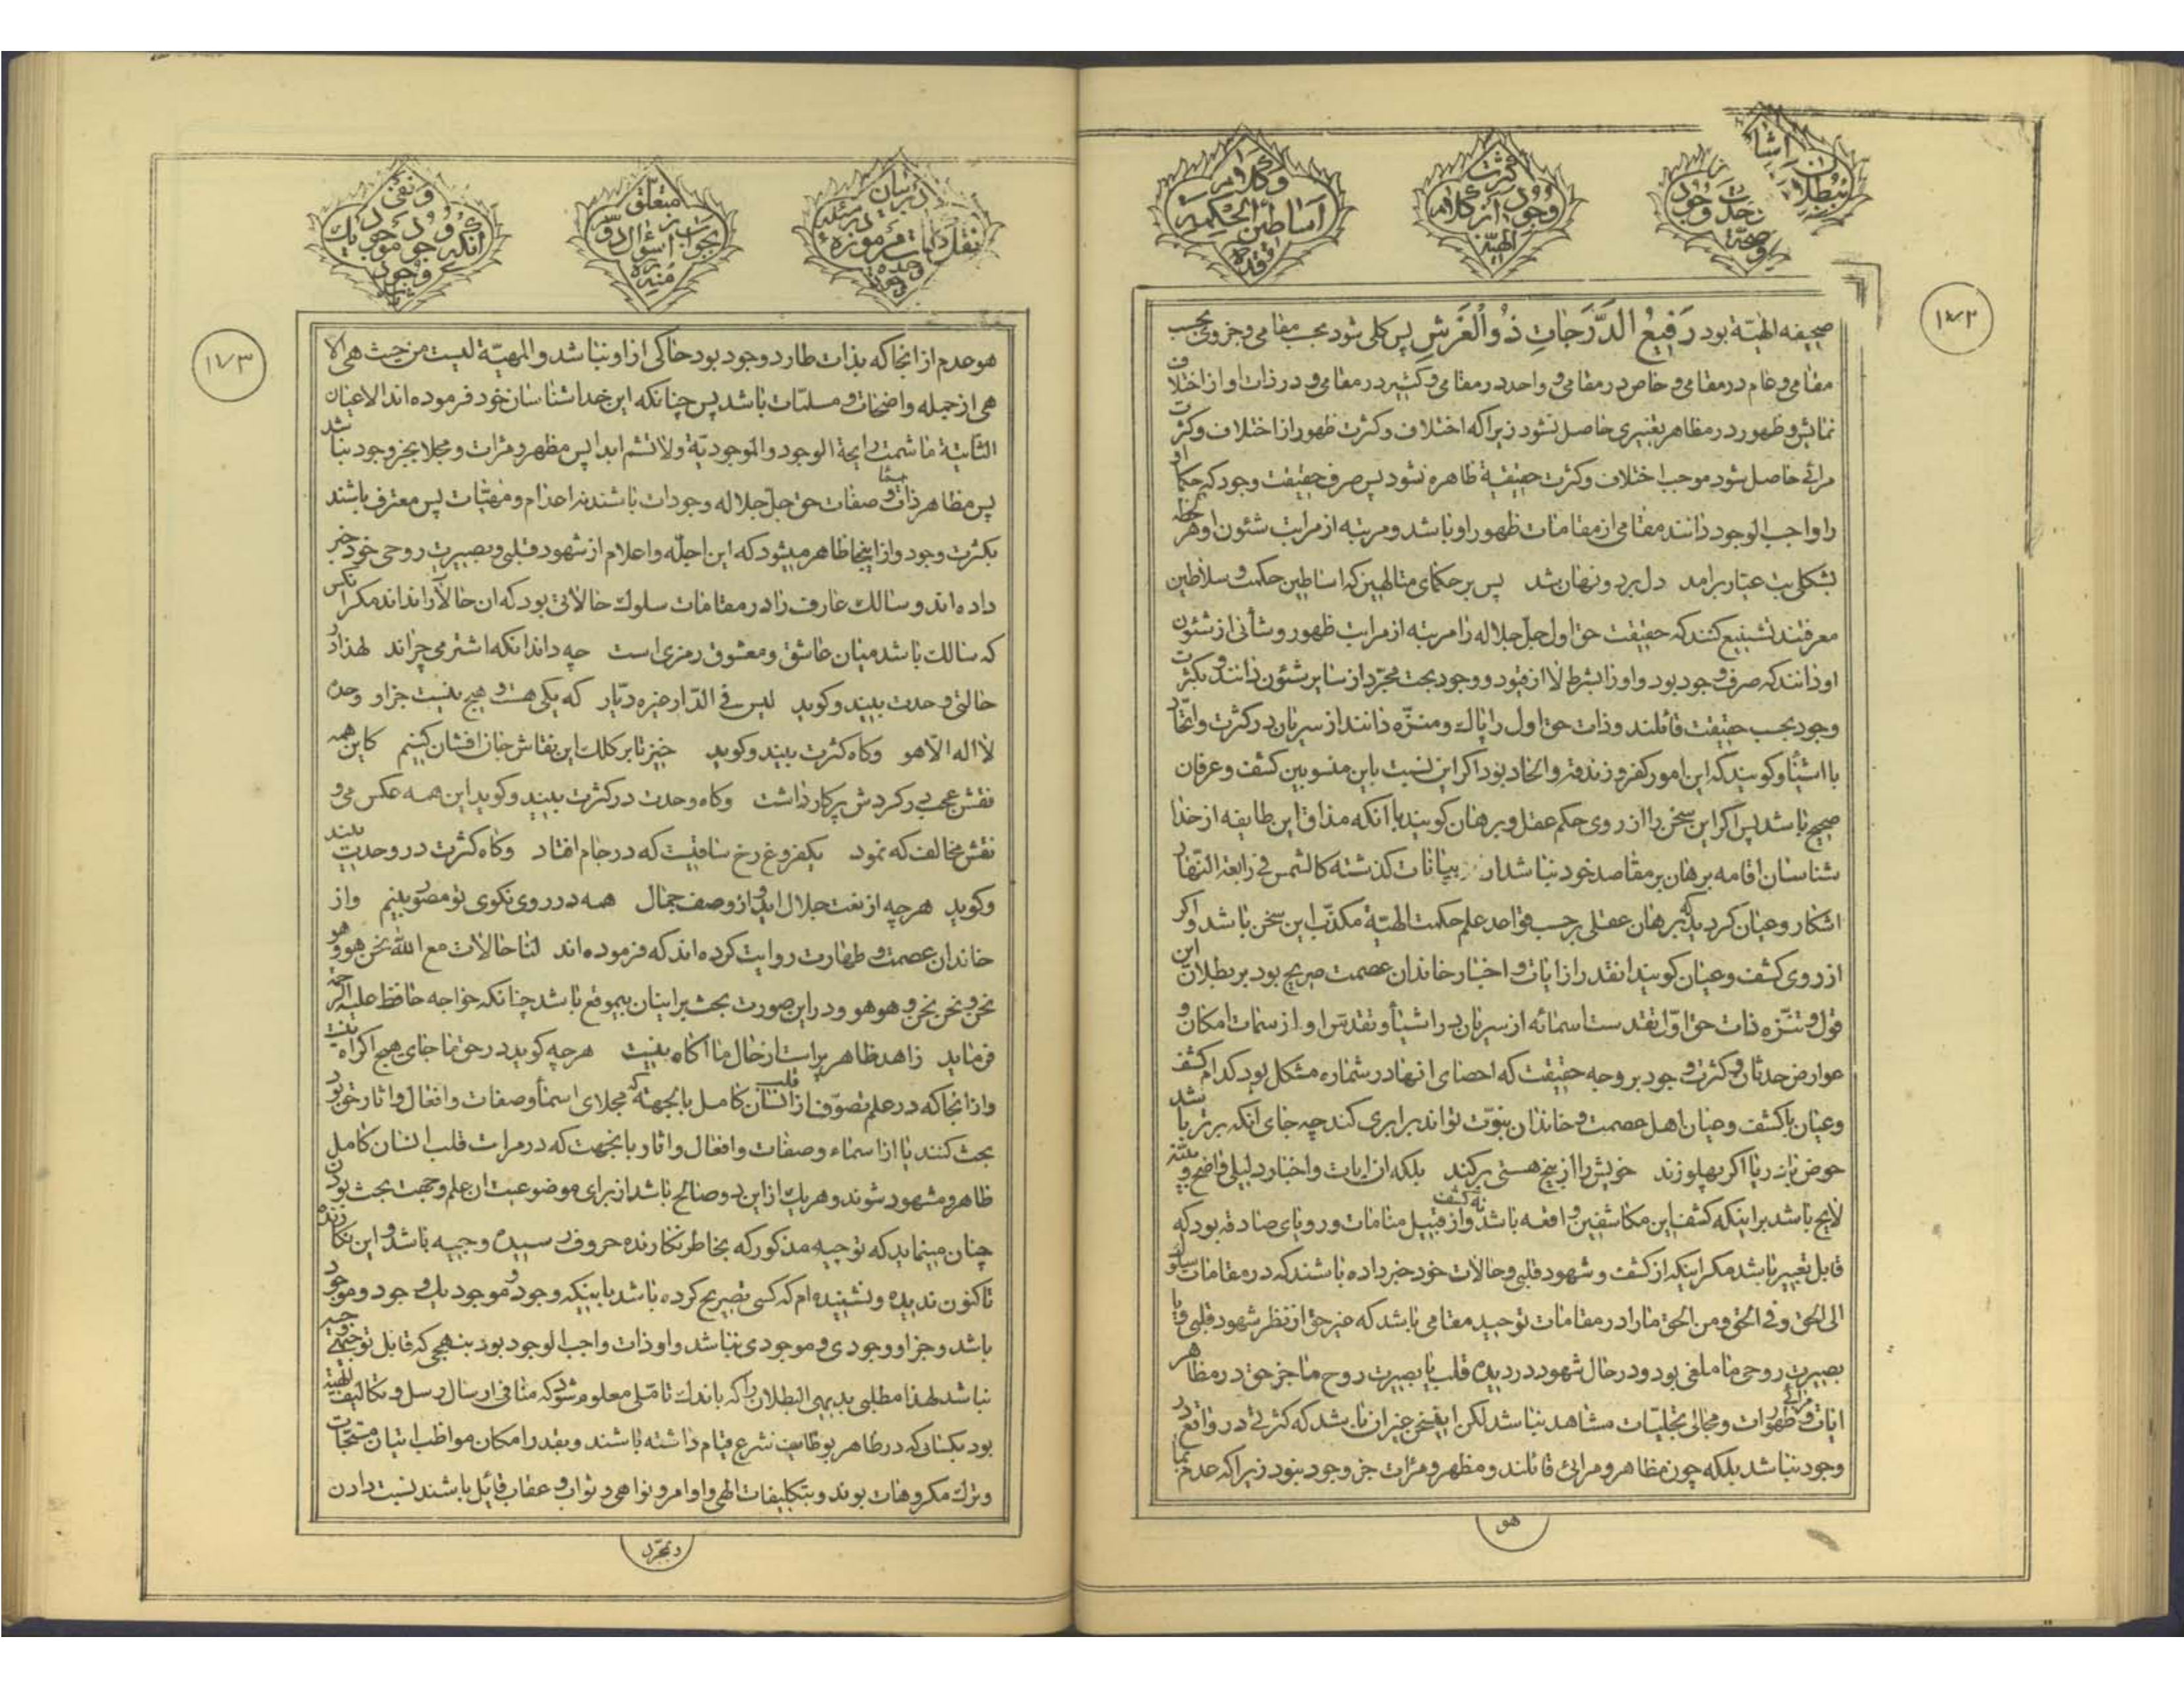 بطلان اشا
نحدت وجود
وصحة
كثرت
وجود از كلام
الهيّة
وكلام
اساطين الحكمة
۱۷۲
صحيفه الهيّة بود رَفيعُ الدَّرَجاتِ ذُو الْعَرْشِ پس كلى شود بحسب مقامى وجزوى بحسب
مقامى وعام در مقامى وخاص در مقامى و واحد در مقامى وكثير در مقامى و در ذات او از اختلاف
نمايش وظهور در مظاهر تغييرى حاصل نشود زيرا كه اختلاف وكثرت ظهور از اختلاف وكثرت
مرائى حاصل شود موجب اختلاف وكثرت حقيقية ظاهره نشود پس صرف حقيقت وجود كه حكما او
را واجب الوجود دانند مقامى از مقامات ظهور او باشد ومرتبه از مراتب شئون او هر لحظه
بشكلى بت عيار برامد دل برد ونهان شد پس بر حكماى متالهين كه اساطين حكمت وسلاطين
معرفتند تشنيع كنند كه حقيقت حق اول جلّ جلاله را مرتبه از مراتب ظهور وشأنى از شئون
او دانند كه صرف وجود بود واو را بشرط لا از قيود و وجود بحت مجرّد از ساير شئون دانند و بكثرت
وجود بحسب حقيقت قائلند وذات حق اول را پاك ومنزّه دانند از سريان در كثرت واتّحاد
با اشيا وكويند كه اين امور كفر و زندقه والحاد بود اكر اين نسبت باين منسوبين كشف وعرفان
صحيح باشد پس اكر اين سخن را از روى حكم عقل وبرهان كويند با انكه مذاق اين طايفه از خدا
شناسان اقامه برهان بر مقاصد خود نباشد از بيانات كذشته كالشمس فى رابعة النّهار
اشكار وعيان كرديد كه برهان عقلى بر حسب قواعد علم حكمت الهيّة مكذّب اين سخن باشد واكر
از روى كشف وعيان كويند انقدر از ايات و اخبار خاندان عصمت صريح بود بر بطلان اين
قول وتنزّه ذات حق اوّل تقدست اسمائه از سريان در اشيا وتقدس او از سمات امكان و
عوارض حدثان وكثرت وجود بر وجه حقيقت كه احصاى انها در شماره مشكل بود كدام كشف
وعيان با كشف وعيان اهل عصمت و خاندان نبوّت تواند برابرى كند چه جاى انكه برتر باشد
حوض با دريا اكر پهلو زند خويش را از بيخ هستى بركند بلكه ان ايات واخبار دليلى واضح و بيّنه
لايح باشد بر اينكه كشف اين مكاشفين واقعه باشد نه كشف و از قبيل منامات ورؤياى صادقه بود كه
قابل تعبير باشد مكر اينكه از كشف و شهود قلبى وحالات خود خبر داده باشند كه در مقامات سلوك
الى الحق وفى الحق ومن الحق ما را در مقامات توحيد مقامى باشد كه غير حق از نظر شهود قلبى ويا
بصيرت روحى ما ملغى بود ودر حال شهود در ديده قلب يا بصيرت روح ما جز حق در مظاهر
ايات ومرائى ظهورات ومجالى تجليّات مشاهد نباشد لكن اين سخن غير ان باشد كه كثرتى در واقع در
وجود نباشد بلكه چون مظاهر ومرائى قائلند ومظهر ومرات جز وجود نبود زيرا كه عدم بما
هو
در بيان
نقل
مرموزه
متعلق
بجواب از
سؤال
منيره
ونفى
انكه وجود
موجود يك
وجود
۱۷۳
هو عدم از انجا كه بذات طارد وجود بود حاكى از او نباشد والمهيّة ليست من حيث هى الا
هى از جمله واضحات و مسلّمات باشد پس چنانكه اين خداشناسان خود فرموده اند الاعيان
الثابتة ما شمت رايحة الوجود والموجوديّة ولا تشم ابدا پس مظهر ومرات ومجلا بجز وجود نباشد
پس مظاهر ذات وصفات حق جلّ جلاله وجودات باشند نه اعدام ومهيّات پس معترف باشند
بكثرت وجود واز اينجا ظاهر ميشود كه اين اجلّه واعلام از شهود قلبى وبصيرت روحى خود خبر
داده اند و سالك عارف را در مقامات سلوك حالاتى بود كه ان حالا را نداند مكر انكس
كه سالك باشد ميان عاشق ومعشوق رمزى است چه داند انكه اشتر مى چراند لهذا در
حالتى وحدت بيند وكويد ليس فى الدّار غيره ديّار كه يكى هست و هيچ نيست جز او وحده
لا اله الّا هو وكاه كثرت بيند وكويد خيز تا بر كلك اين نقاش جان افشان كنيم كاين همه
نقش عجب در كردش پركار داشت وكاه وحدت در كثرت بيند وكويد اين همه عكس مى و
نقش مخالف كه نمود يكفروغ رخ ساقيست كه در جام افتاد وكاه كثرت در وحدت بيند
وكويد هرچه از نعت جلال ايد و از وصف جمال همه در روى نكوى تو مصوّر بينم واز
خاندان عصمت و طهارت روايت كرده اند كه فرموده اند لنا حالات مع اللّه نحن هو وهو
نحن ونحن نحن وهو هو ودر اين صورت بحث بر اينان بيموقع باشد چنانكه خواجه حافظ عليه الرحمه
فرمايد زاهد ظاهر پرست از حال ما اكاه نيست هرچه كويد در حق ما جاى هيچ اكراه نيست
واز انجا كه در علم تصوّف از قلب انسان كامل بانجهته كه مجلاى اسما وصفات وافعال واثار حق بود
بحث كنند يا از اسماء وصفات وافعال واثار بانجهت كه در مرات قلب انسان كامل
ظاهر ومشهود شوند وهر يك از اين دو صالح باشد از براى موضوعيت ان علم وجهت بحث بودن
چنان مينمايد كه توجيه مذكور كه بخاطر نكارنده حروف رسيده وجيه باشد و اين نكارنده
تاكنون نديده ونشنيده ام كه كسى تصريح كرده باشد باينكه وجود و موجود يك وجود وموجود
باشد وجز او وجودى وموجودى نباشد واو ذات واجب الوجود بود بنهجى كه قابل توجيهى
نباشد لهذا مطلبى بديهى البطلان را كه باندك تامّلى معلوم شود كه منافى ارسال رسل وتكاليف الهيّة
بود بكسانى كه در ظاهر بوظايف شرع قيام داشته باشند وبقدر امكان مواظب اتيان مستحبّات
وترك مكروهات بوند وبتكليفات الهى واوامر ونواهى و ثواب و عقاب قائل باشند نسبت دادن